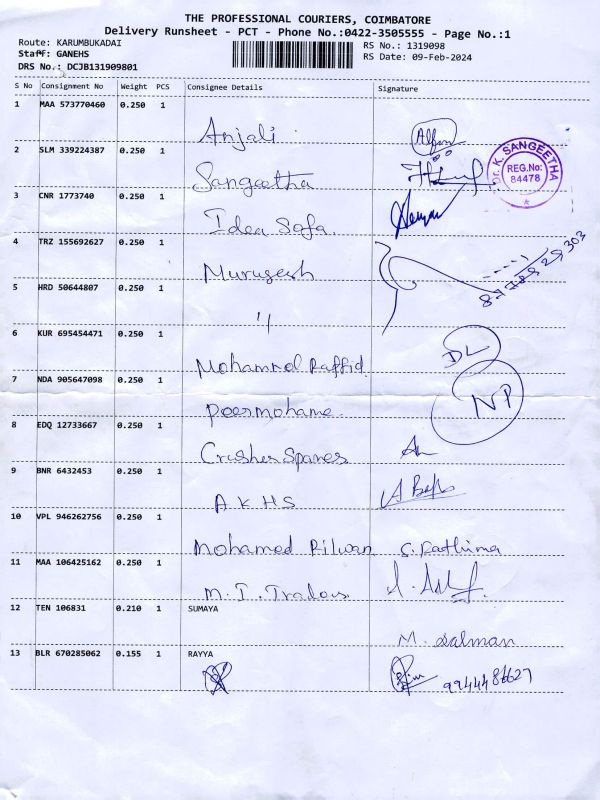 THE PROFESSIONAL COURIERS, COIMBATORE
Delivery Runsheet - PCT - Phone No.:0422-3505555 - Page No.:1
Route: KARUMBUKADAI RS No.: 1319098
Staff: GANEHS RS Date: 09-Feb-2024
DRS No.: DCJB131909801
S No Consignment No Weight PCS Consignee Details Signature
1 MAA 573770460 0.250 1
Anjali
2 SLM 339224387 0.250 1
Sangeetha
Dr. K. SANGEETHA
REG.No:
84478
3 CNR 1773740 0.250 1
Idea Sofa
4 TRZ 155692627 0.250 1
Murugesh
5 HRD 50644807 0.250 1
"
6 KUR 695454471 0.250 1
Mohammed Raffid DL
7 NDA 905647098 0.250 1
Peermohame NP
8 EDQ 12733667 0.250 1
Crusher Spares
9 BNR 6432453 0.250 1
A K H S
10 VPL 946262756 0.250 1
Mohamed Rilwan S. Fathima
11 MAA 106425162 0.250 1
M. I. Traders
12 TEN 106831 0.210 1 SUMAYA
M. Salman
13 BLR 670285062 0.155 1 RAYYA